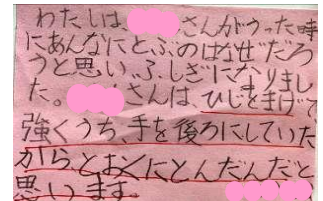 わたしは、 さんがうった時
にあんなにとぶのはなぜだろ
うと思い、ふしぎになりまし
た。 さんは、ひじをまげて
強くうち、手を後ろにしていた
からとおくにとんだんだと
思います。